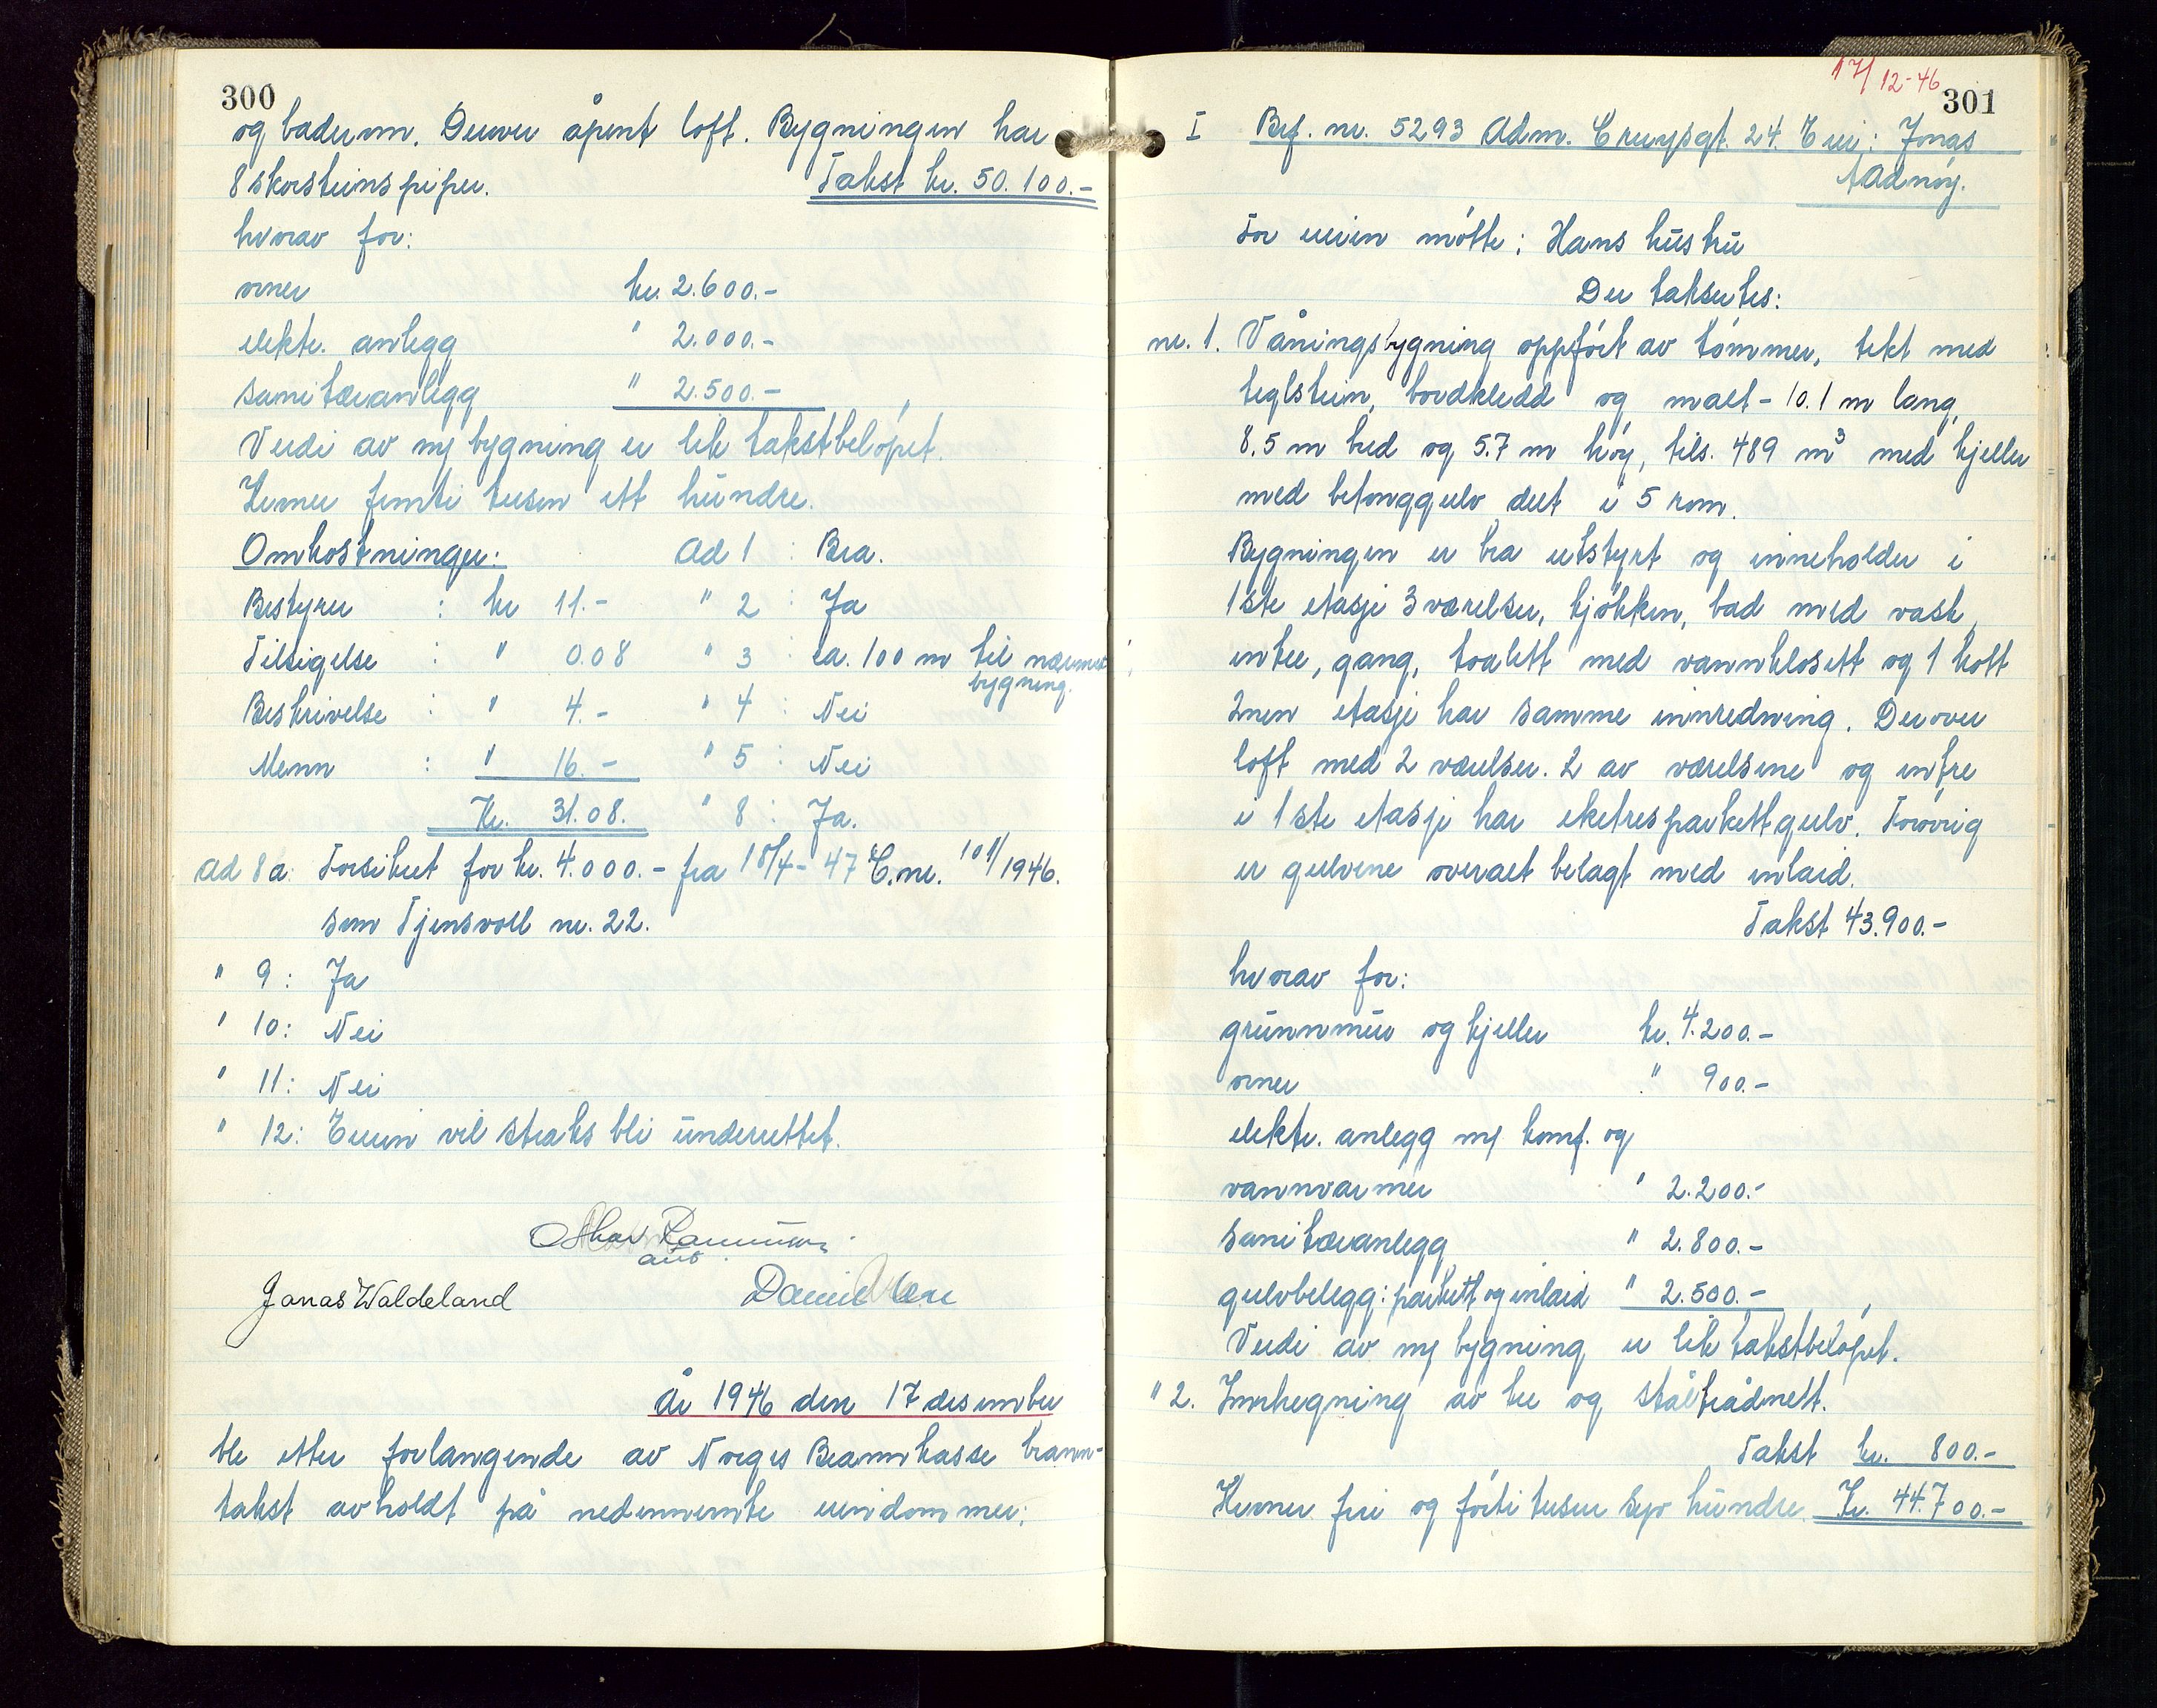 300
og baderum. Derover åpent loft. Bygningen har
8 skorsteinspiper. Takst kr. 50.100.-
hvorav for:
ovner kr. 2.600.-
elektr. anlegg " 2.000.-
sanitæranlegg " 2.500.-
Verdi av ny bygning er lik takstbeløpet.
Kroner femti tusen ett hundre.
Omkostninger: ad 1 : Bra.
Bestyrer : kr 11.- " 2 : Ja
Tilsigelse : " 0.08 " 3 : ca. 100 m til nærmest
bygning.
Beskrivelse : " 4.- " 4 : Nei
Menn : " 16.- " 5 : Nei
Kr. 31.08. " 8 : Ja.
ad 8a: Forsikret for kr. 4.000.- fra 18/4-47 C.nr. 101/1946.
som Tjensvoll nr. 22.
" 9: Ja
" 10: Nei
" 11: Nei
" 12: Eieren vil straks bli underrettet.
Jonas Waldeland
År 1946 den 17 desember
ble etter forlangende av Norges Brannkasse brann-
takst avholdt på nedennevnte eiendommer:
17/12-46
301
I Brf. nr. 5293 Adm. Cruysgt. 24. Eier: Jonas
Aadnøy.
For eieren møtte: Hans hustru
Der taksertes:
nr. 1. Våningsbygning oppført av tømmer, tekt med
teglstein, bordkledd og malt - 10.1 m lang,
8.5 m bred og 5.7 m høy, tils. 489 m3 med kjeller
med betonggulv delt i 5 rom.
Bygningen er bra utstyrt og inneholder i
1ste etasje 3 værelser, kjøkken, bad med vask,
entre, gang, toalett med vannklosett og 1 kott
2nen etasje har samme innredning. Derover
loft med 2 værelser. 2 av værelsene og entre
i 1ste etasje har eketresparkettgulv. Forøvrig
er gulvene overalt belagt med inlaid.
Takst 43.900.-
hvorav for:
grunnmur og kjeller kr. 4.200.-
ovner " 900.-
elektr. anlegg m/ komf. og
vannvarmer " 2.200.-
sanitæranlegg " 2.800.-
gulvbelegg: parkett og inlaid " 2.500.-
Verdi av ny bygning er lik takstbeløpet.
" 2. Innhegning av tre og ståltrådnett.
Takst kr. 800.-
Kroner fire og førti tusen sju hundre. Kr. 44.700.-